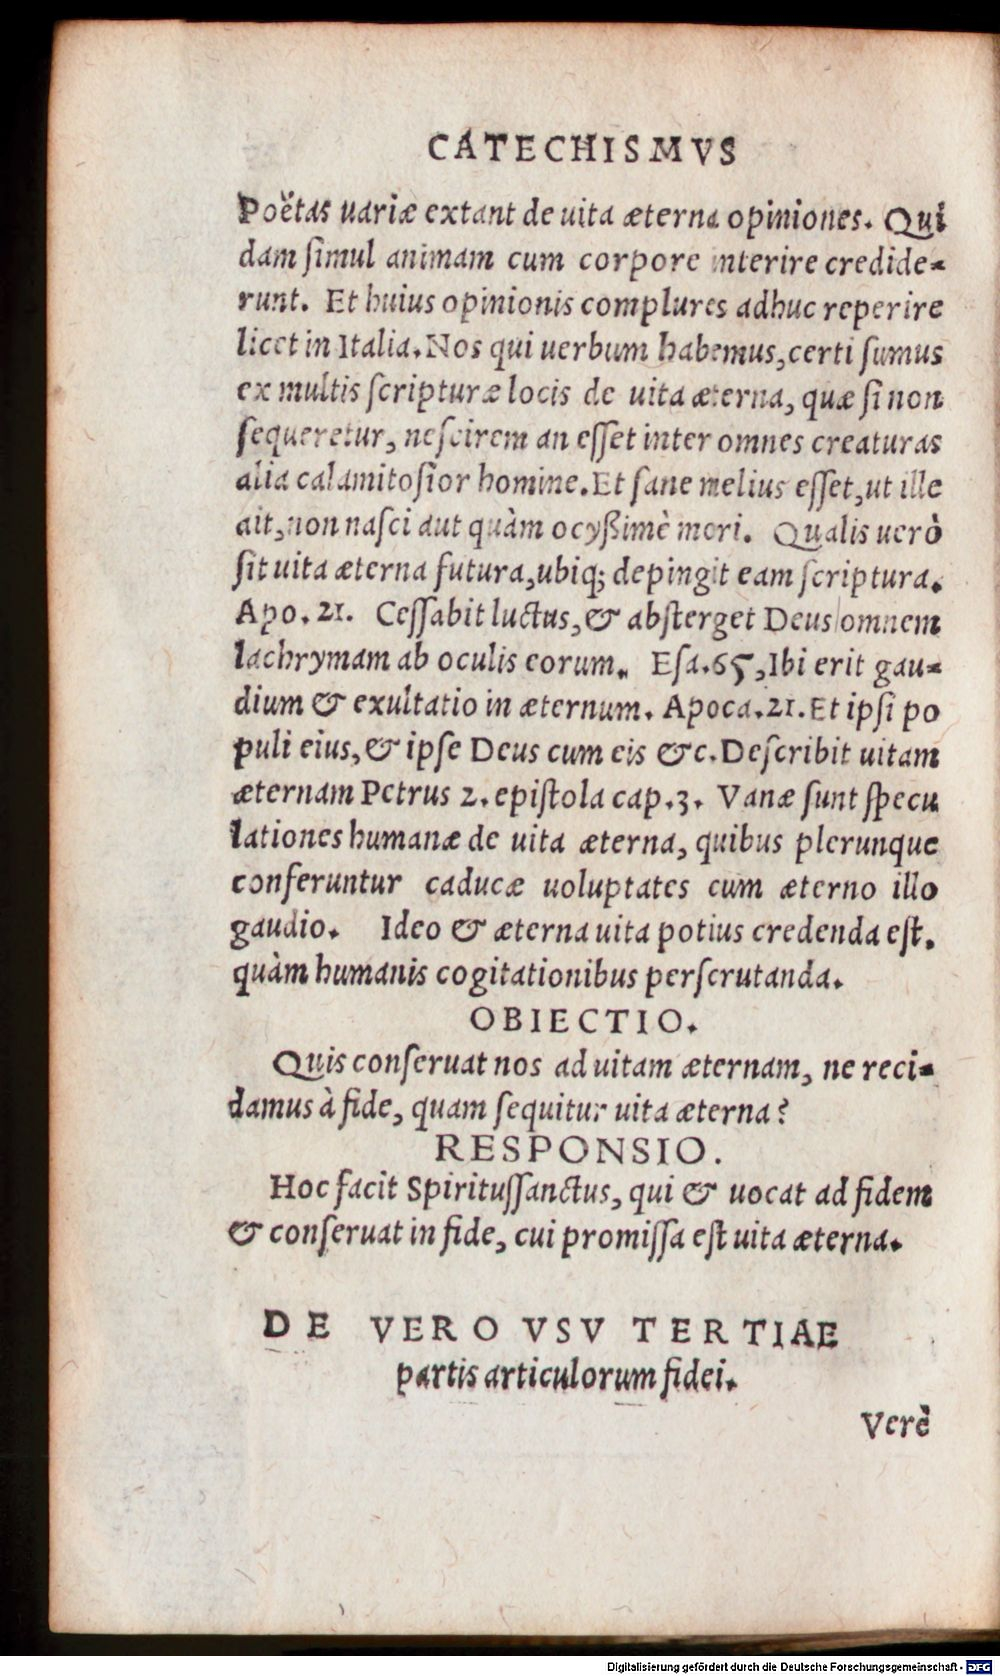 CATECHISMVS
Poëtas uariæ extant de uita æterna opiniones. Qui
dam ſimul animam cum corpore interire credide-
runt. Et huius opinionis complures adhuc reperire
licet in Italia. Nos qui uerbum habemus, certi ſumus
ex multis ſcripturæ locis de uita æterna, quæ ſi non
ſequeretur, neſcirem an eſſet inter omnes creaturas
alia calamitoſior homine. Et ſane melius eſſet, ut ille
ait, non naſci aut quàm ocyßimè mori. Qualis uerò
ſit uita æterna futura, ubiq; depingit eam ſcriptura.
Apo. 21. Ceſſabit luctus, & abſterget Deus omnem
lachrymam ab oculis eorum. Eſa. 65, Ibi erit gau-
dium & exultatio in æternum. Apoca. 21. Et ipſi po
puli eius, & ipſe Deus cum eis &c. Deſcribit uitam
æternam Petrus 2. epiſtola cap. 3. Vanæ ſunt ſpecu
lationes humanæ de uita æterna, quibus plerunque
conferuntur caducæ uoluptates cum æterno illo
gaudio. Ideo & æterna uita potius credenda eſt.
quàm humanis cogitationibus perſcrutanda.
OBIECTIO.
Quis conſeruat nos ad uitam æternam, ne reci-
damus à fide, quam ſequitur uita æterna?
RESPONSIO.
Hoc facit Spirituſſanctus, qui & uocat ad fidem
& conſeruat in fide, cui promiſſa eſt uita æterna.
DE VERO VSV TERTIAE
partis articulorum fidei.
Verè
Digitalisierung gefördert durch die Deutsche Forschungsgemeinschaft - DFG